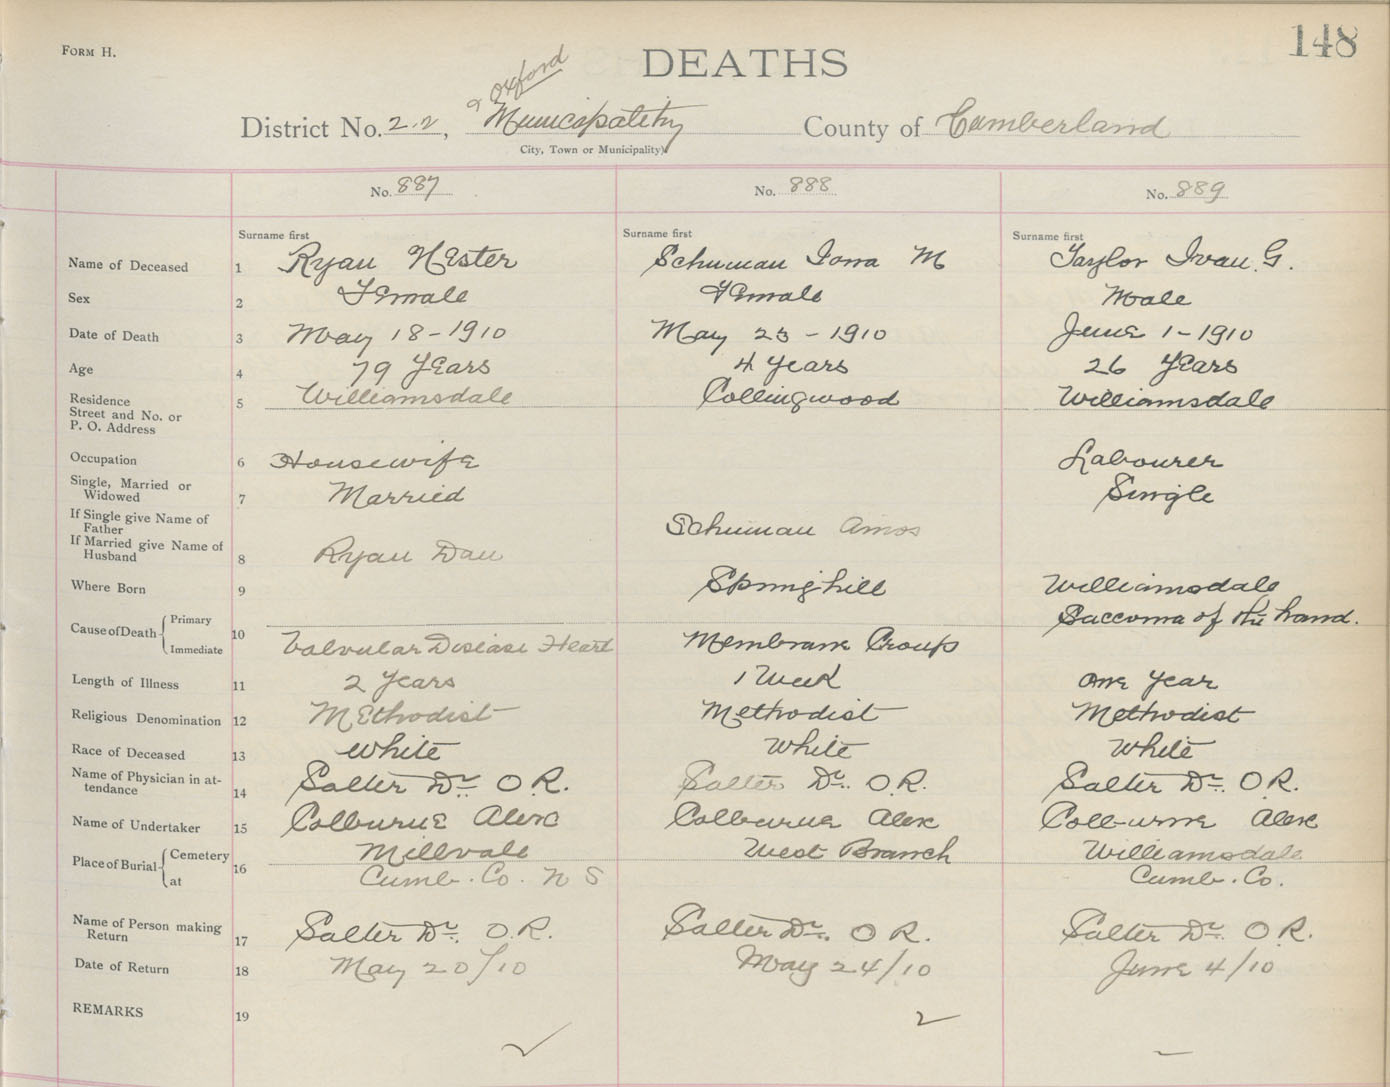 FORM H.
DEATHS
148
& Oxford
District No. 22, Municipality County of Cumberland
City, Town or Municipality)
No. 887 No. 888 No. 889
Surname first Surname first Surname first
Name of Deceased 1 Ryan Hester Schuman Iona M Taylor Ivan. G.
Sex 2 Female Female Male
Date of Death 3 May 18-1910 May 23-1910 June 1-1910
Age 4 79 Years 4 Years 26 Years
Residence 5 Williamsdale Collingwood Williamsdale
Street and No. or
P. O. Address
Occupation 6 Housewife Labourer
Single, Married or
Widowed 7 Married Single
If Single give Name of
Father Schuman Amos
If Married give Name of
Husband 8 Ryan Dan
Where Born 9 Springhill Williamsdale
Cause of Death Primary Saccoma of the hand.
Immediate 10 Valvular Disease Heart Membrane Croup
Length of Illness 11 2 Years 1 Week One Year
Religious Denomination 12 Methodist Methodist Methodist
Race of Deceased 13 White White White
Name of Physician in at-
tendance 14 Salter Dr. O.R. Salter Dr. O.R. Salter Dr. O.R.
Name of Undertaker 15 Colburne Alex Colburne Alex Colburne Alex
Place of Burial Cemetery 16 Millvale West Branch Williamsdale
at Cumb. Co. N S Cumb. Co.
Name of Person making
Return 17 Salter Dr. O.R. Salter Dr. O R. Salter Dr. O R.
Date of Return 18 May 20/10 May 24/10 June 4/10
REMARKS 19